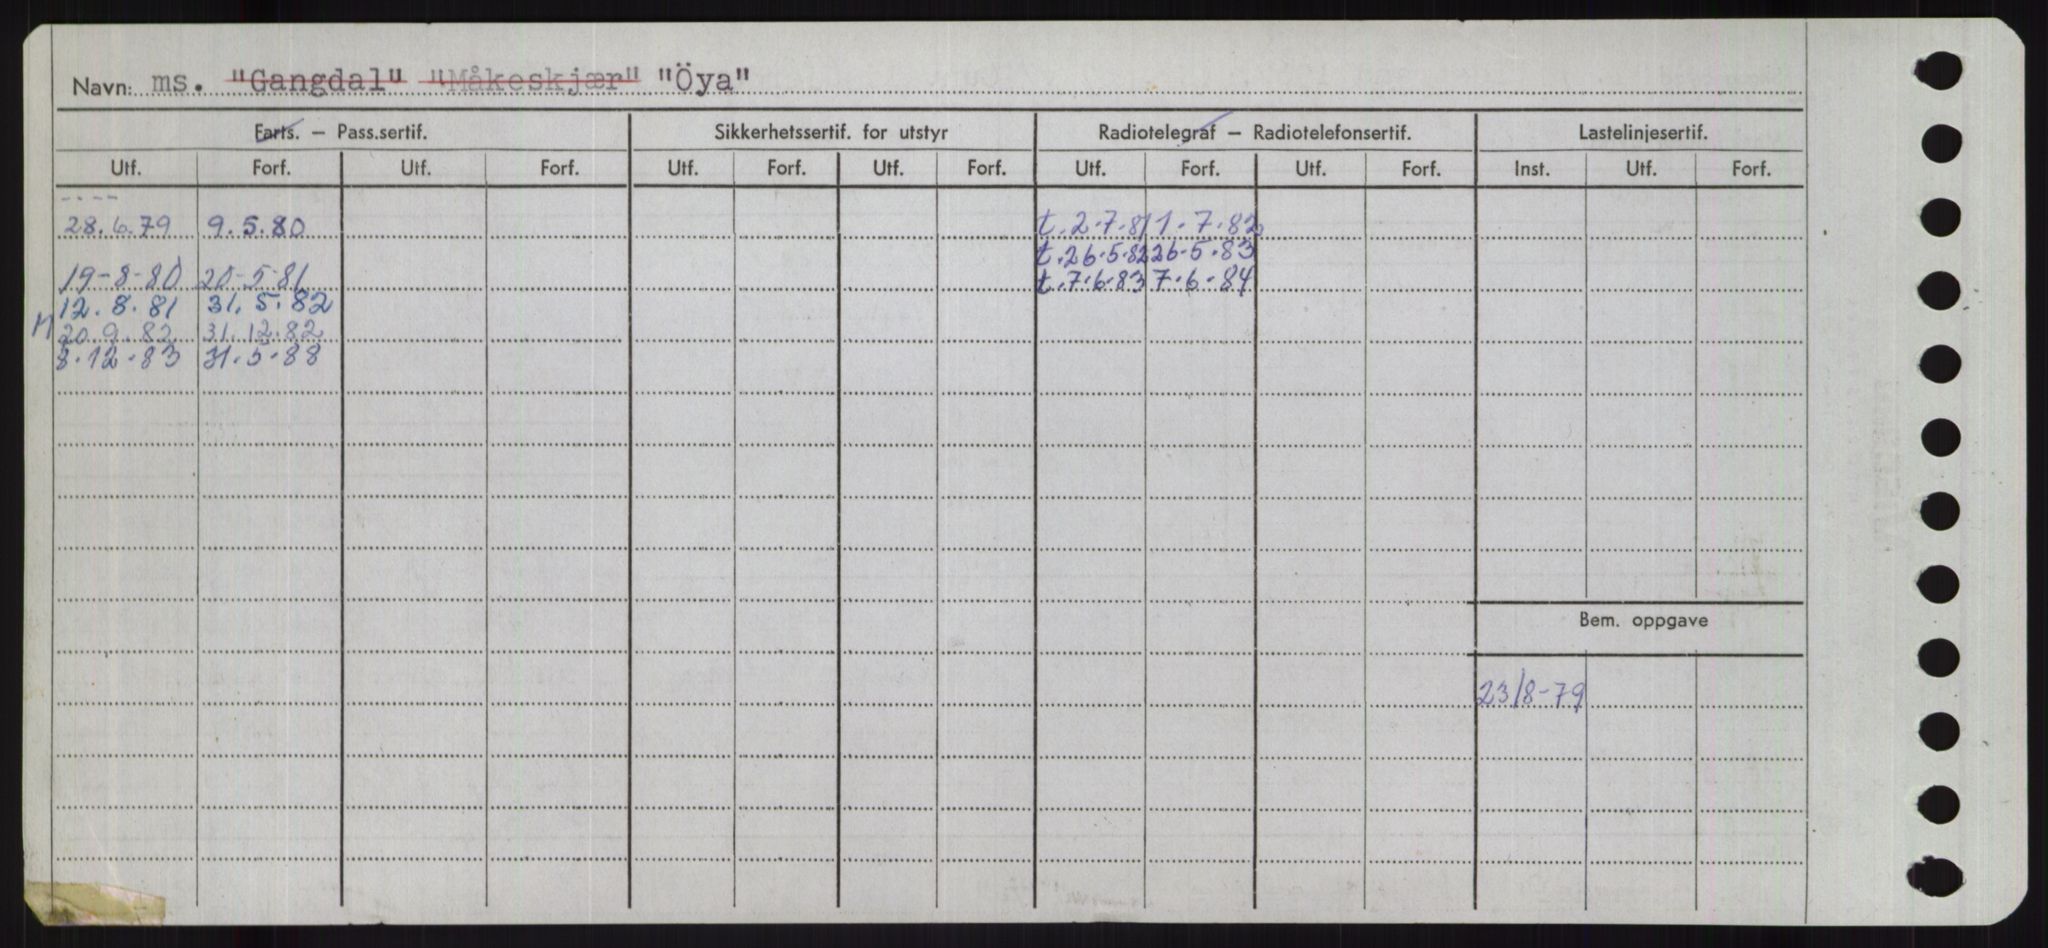 Navn: ms. "Gangdal" "Måkeskjær" "Öya"
Farts. – Pass.sertif. Sikkerhetssertif. for utstyr Radiotelegraf – Radiotelefonsertif. Lastelinjesertif.
Utf. Forf. Utf. Forf. Utf. Forf. Utf. Forf. Utf. Forf. Utf. Forf. Inst. Utf. Forf.
----
28.6.79 9.5.80 t.2.7.81 1.7.82
t.26.5.82 26.5.83
19-8-80 20-5-81 t.7.6.83 7.6.84
12.8.81 31.5.82
M 20.9.82 31.12.82
8.12.83 31.5.88
Bem. oppgave
23/8-79